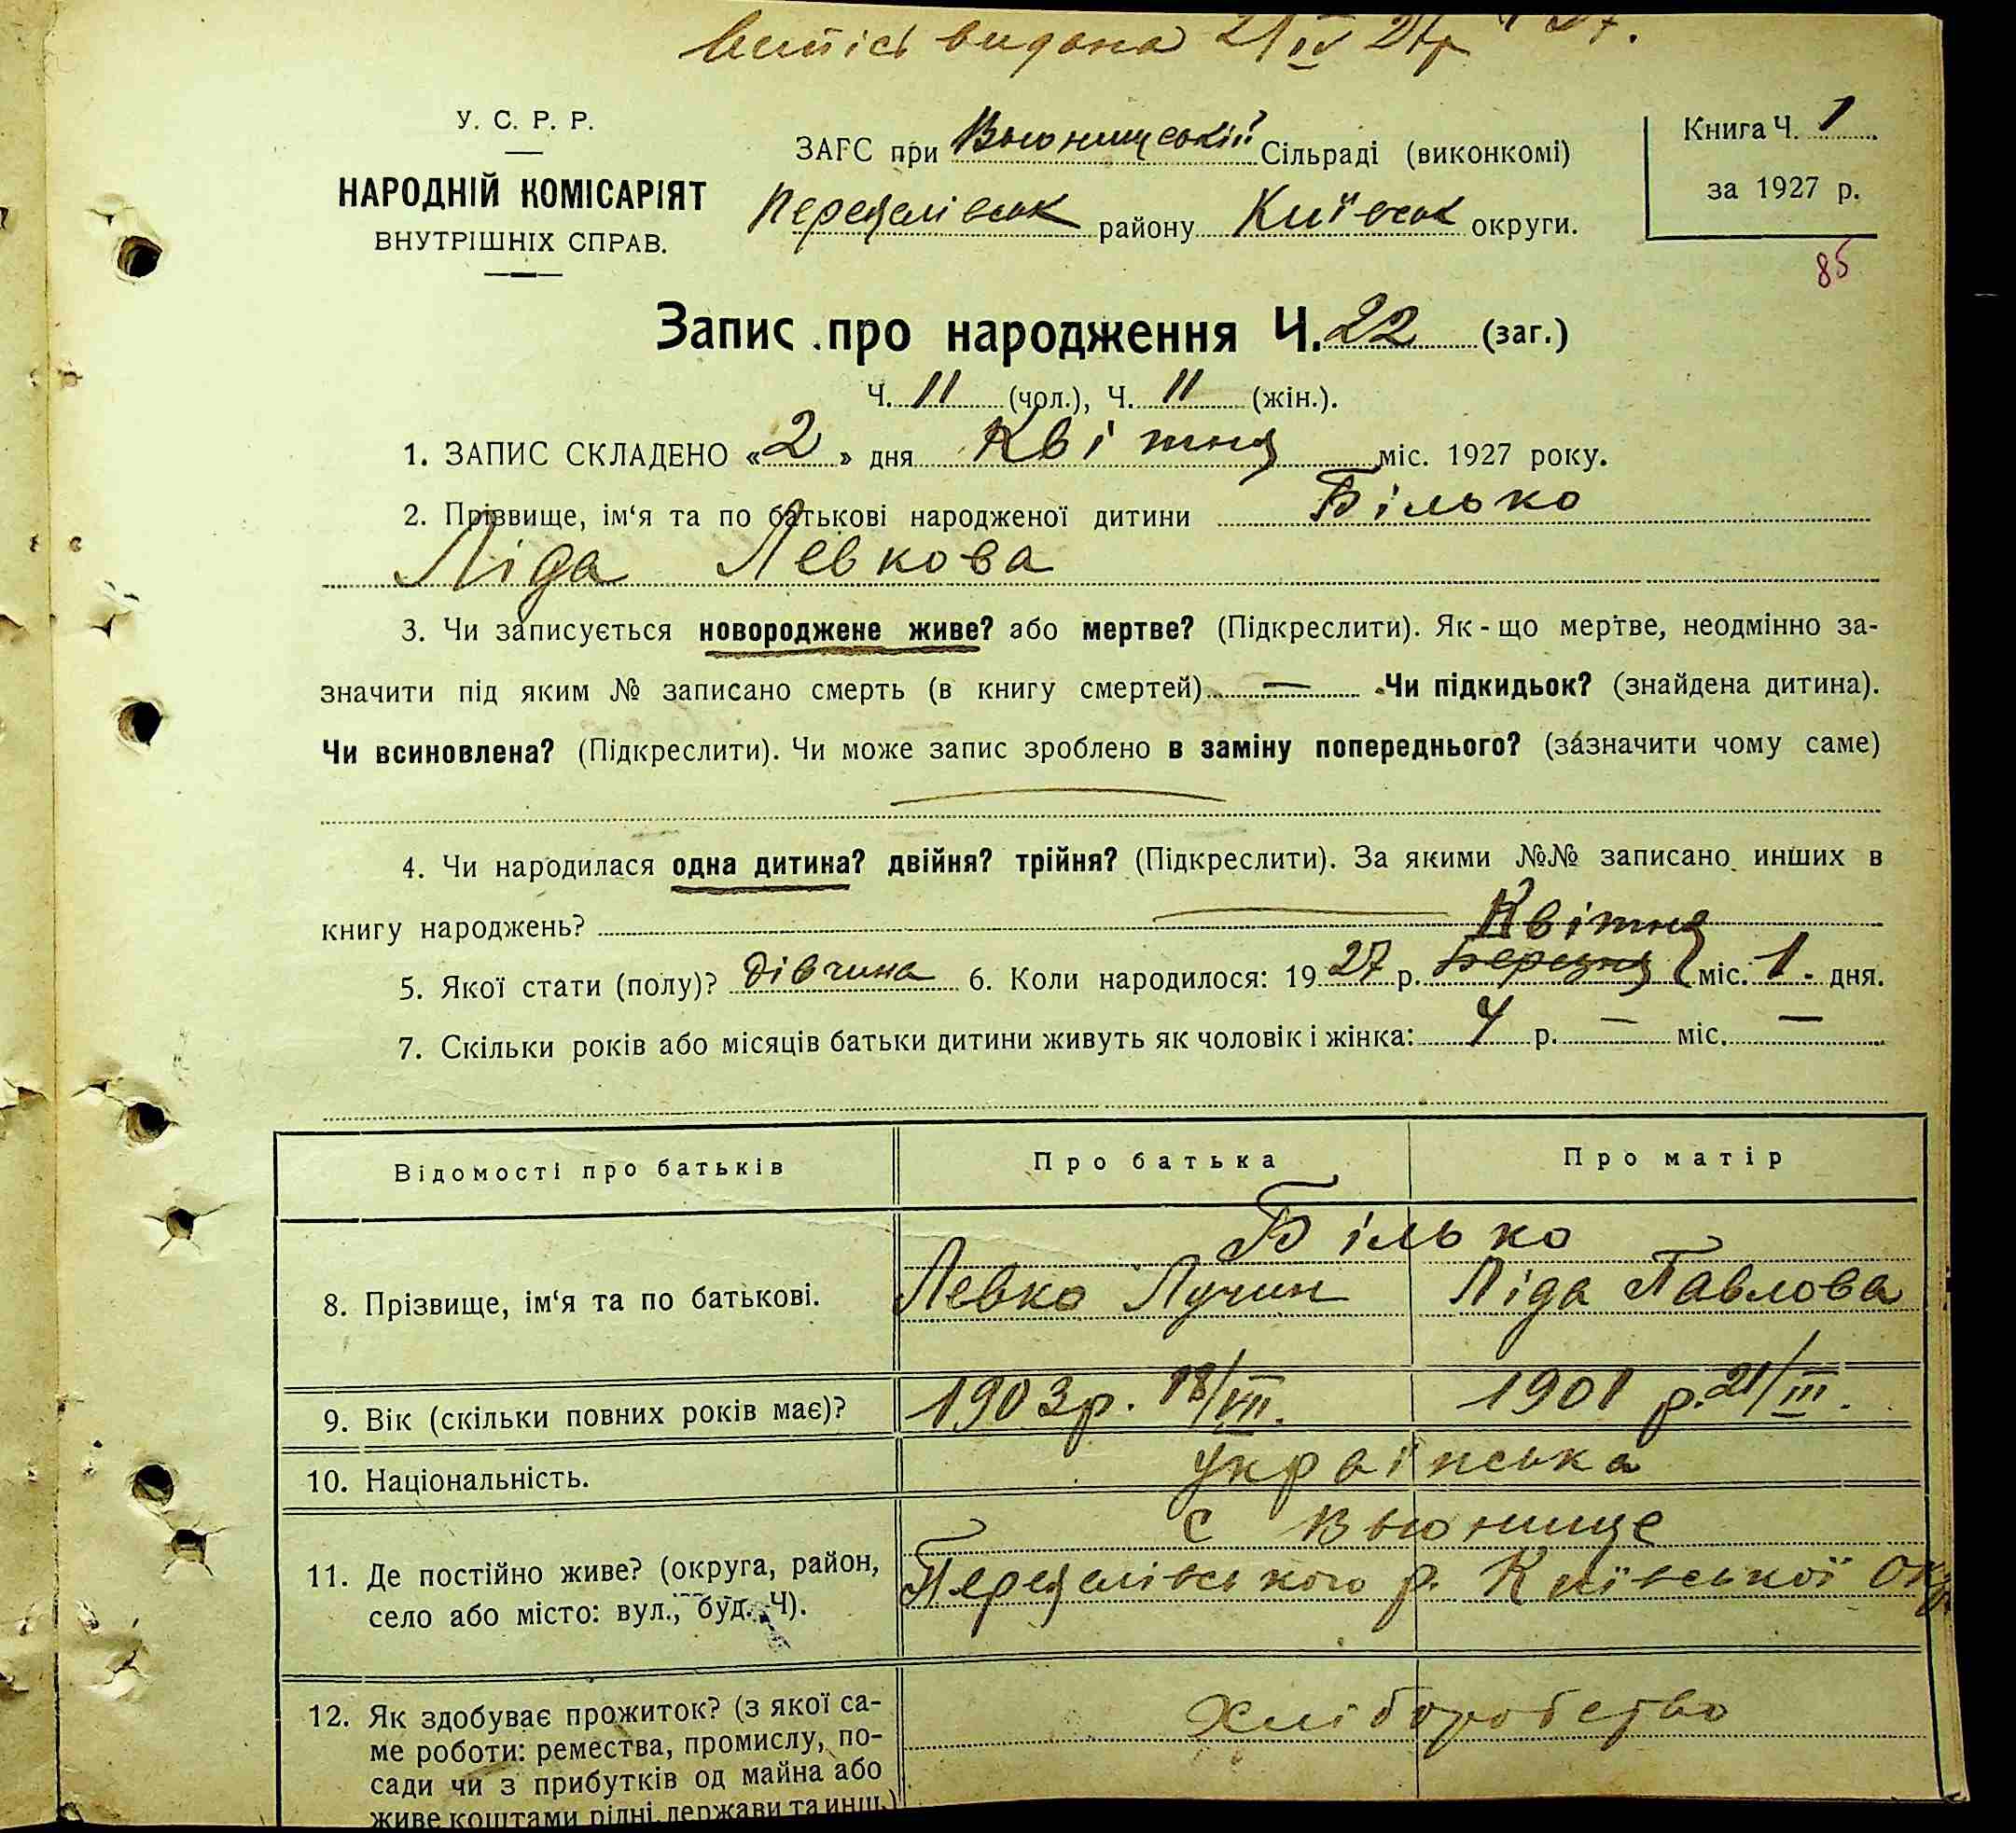 Випісь видана 21/IV 27р
У. С. Р. Р.
НАРОДНІЙ КОМІСАРІЯТ
ВНУТРІШНІХ СПРАВ.
ЗАГС при Вьюнищській Сільраді (виконкомі)
Переяслівськ району Київськ округи.
Книга Ч. 1
за 1927 р.
85
Запис про народження Ч. 22 (заг.)
Ч. 11 (чол.), Ч. 11 (жін.).
1. ЗАПИС СКЛАДЕНО «2» дня Квітня міс. 1927 року.
2. Прізвище, ім‘я та по батькові народженої дитини Білько
Ліда Левкова
3. Чи записується новороджене живе? або мертве? (Підкреслити). Як-що мертве, неодмінно за-
значити під яким № записано смерть (в книгу смертей) — Чи підкидьок? (знайдена дитина).
Чи всиновлена? (Підкреслити). Чи може запис зроблено в заміну попереднього? (зазначити чому саме)
4. Чи народилася одна дитина? двійня? трійня? (Підкреслити). За якими №№ записано инших в
книгу народжень? —
Квітня
5. Якої стати (полу)? дівчина 6. Коли народилося: 1927 р. Березня міс. 1 дня.
7. Скільки років або місяців батьки дитини живуть як чоловік і жінка: 4 р. — міс. —
Відомості про батьків Про батька Про матір
Білько
8. Прізвище, ім‘я та по батькові. Левко Лучин Ліда Павлова
9. Вік (скільки повних років має)? 1903р. 18/VII. 1901 р. 21/III.
10. Національність. Українська
с Вьюнище
11. Де постійно живе? (округа, район, Переяслівського р. Київської Окр
село або місто: вул., буд. Ч).
12. Як здобуває прожиток? (з якої са- Хліборобство
ме роботи: ремества, промислу, по-
сади чи з прибутків од майна або
живе коштами рідні, держави та инш.)